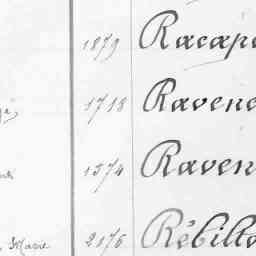 1879 Racap
1718 Ravene
1374 Raven
Marie 2176 Rébilla